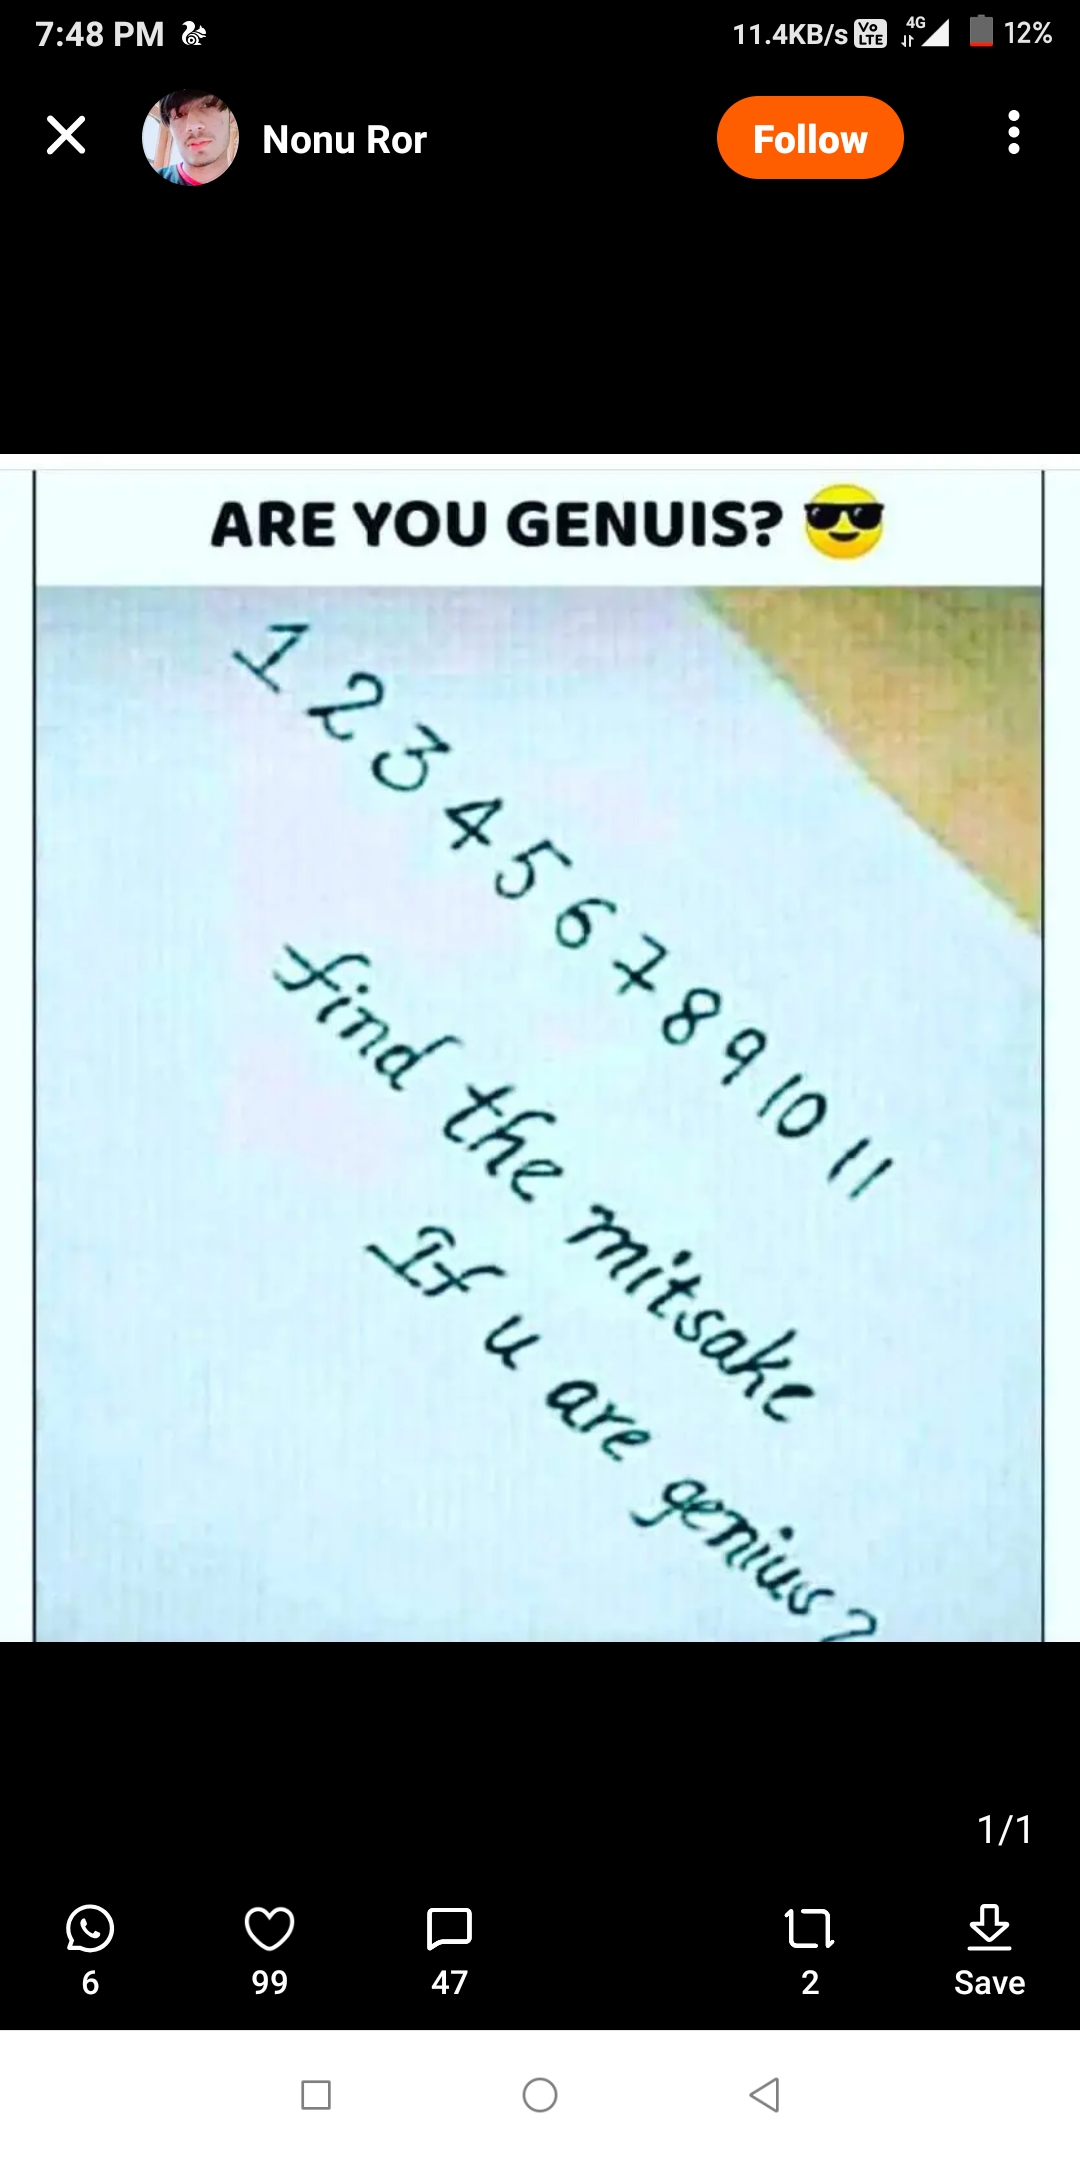 7:48 PM
11.4KB/s Vo LTE 4G 12%
Nonu Ror
Follow
ARE YOU GENUIS? 😎
1 2 3 4 5 6 7 8 9 10 11
find the mitsake
If u are genius?
1/1
6 99 47 2 Save